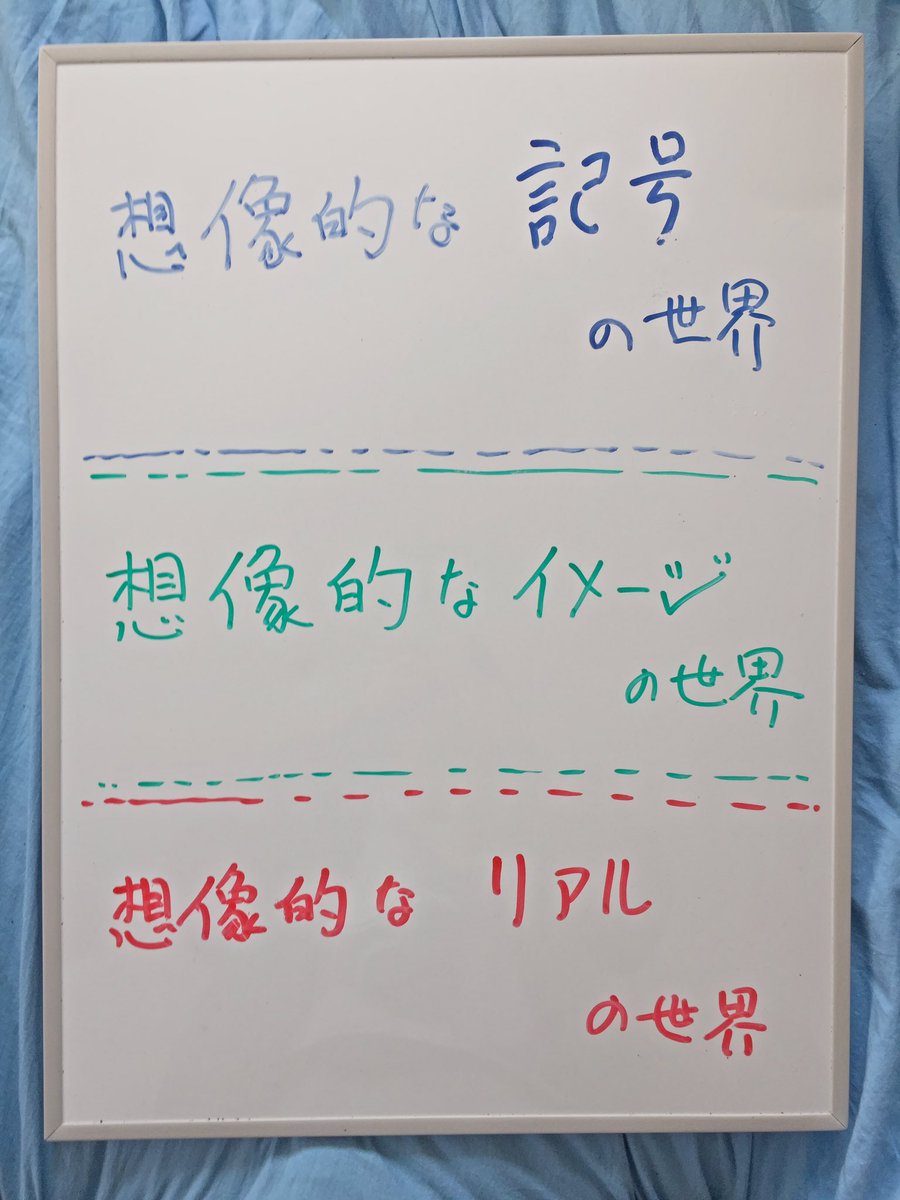 想像的な 記号
の世界
想像的なイメージ
の世界
想像的な リアル
の世界